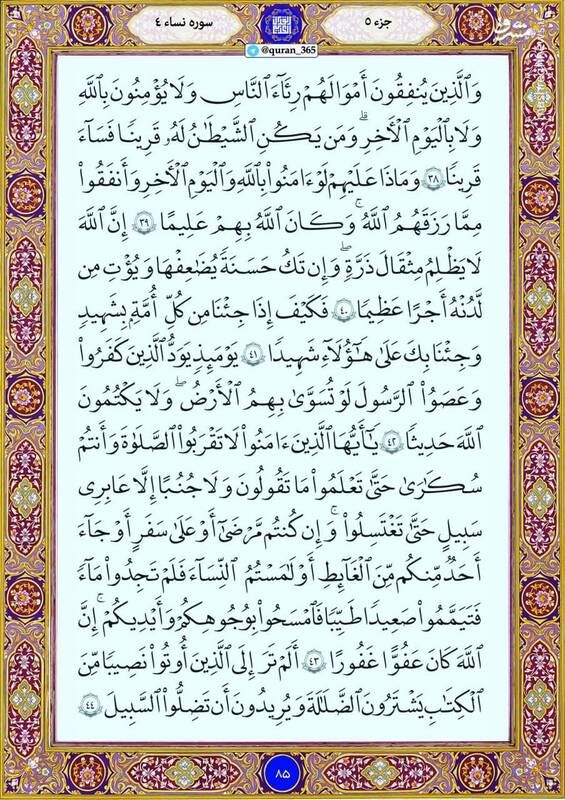 جزء ۵
سوره نساء ۴
مشرق
@quran_365
وَٱلَّذِينَ يُنفِقُونَ أَمْوَٰلَهُمْ رِئَآءَ ٱلنَّاسِ وَلَا يُؤْمِنُونَ بِٱللَّهِ
وَلَا بِٱلْيَوْمِ ٱلْأَخِرِ ۗ وَمَن يَكُنِ ٱلشَّيْطَٰنُ لَهُۥ قَرِينًا فَسَآءَ
قَرِينًا ﴿٣٨﴾ وَمَاذَا عَلَيْهِمْ لَوْ ءَامَنُوا۟ بِٱللَّهِ وَٱلْيَوْمِ ٱلْأَخِرِ وَأَنفَقُوا۟
مِمَّا رَزَقَهُمُ ٱللَّهُ ۚ وَكَانَ ٱللَّهُ بِهِمْ عَلِيمًا ﴿٣٩﴾ إِنَّ ٱللَّهَ
لَا يَظْلِمُ مِثْقَالَ ذَرَّةٍ ۖ وَإِن تَكُ حَسَنَةً يُضَٰعِفْهَا وَيُؤْتِ مِن
لَّدُنْهُ أَجْرًا عَظِيمًا ﴿٤٠﴾ فَكَيْفَ إِذَا جِئْنَا مِن كُلِّ أُمَّةٍ بِشَهِيدٍ
وَجِئْنَا بِكَ عَلَىٰ هَٰٓؤُلَآءِ شَهِيدًا ﴿٤١﴾ يَوْمَئِذٍ يَوَدُّ ٱلَّذِينَ كَفَرُوا۟
وَعَصَوُا۟ ٱلرَّسُولَ لَوْ تُسَوَّىٰ بِهِمُ ٱلْأَرْضُ ۖ وَلَا يَكْتُمُونَ
ٱللَّهَ حَدِيثًا ﴿٤٢﴾ يَٰٓأَيُّهَا ٱلَّذِينَ ءَامَنُوا۟ لَا تَقْرَبُوا۟ ٱلصَّلَوٰةَ وَأَنتُمْ
سُكَٰرَىٰ حَتَّىٰ تَعْلَمُوا۟ مَا تَقُولُونَ وَلَا جُنُبًا إِلَّا عَابِرِى
سَبِيلٍ حَتَّىٰ تَغْتَسِلُوا۟ ۚ وَإِن كُنتُم مَّرْضَىٰٓ أَوْ عَلَىٰ سَفَرٍ أَوْ جَآءَ
أَحَدٌ مِّنكُم مِّنَ ٱلْغَآئِطِ أَوْ لَٰمَسْتُمُ ٱلنِّسَآءَ فَلَمْ تَجِدُوا۟ مَآءً
فَتَيَمَّمُوا۟ صَعِيدًا طَيِّبًا فَٱمْسَحُوا۟ بِوُجُوهِكُمْ وَأَيْدِيكُمْ ۗ إِنَّ
ٱللَّهَ كَانَ عَفُوًّا غَفُورًا ﴿٤٣﴾ أَلَمْ تَرَ إِلَى ٱلَّذِينَ أُوتُوا۟ نَصِيبًا مِّنَ
ٱلْكِتَٰبِ يَشْتَرُونَ ٱلضَّلَٰلَةَ وَيُرِيدُونَ أَن تَضِلُّوا۟ ٱلسَّبِيلَ ﴿٤٤﴾
۸۵